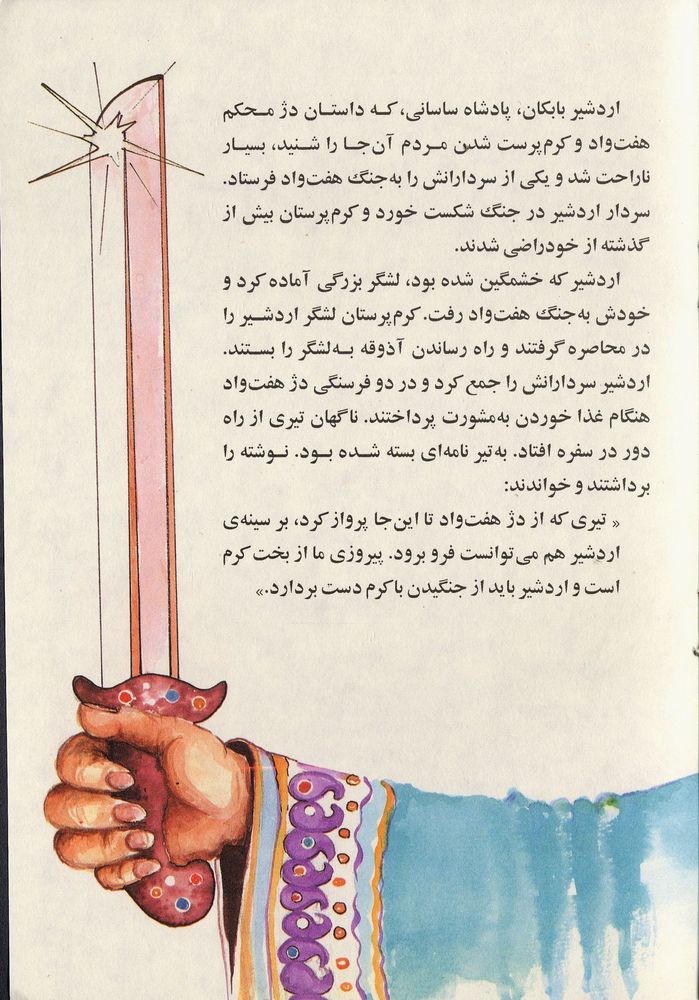 اردشیر بابکان، پادشاه ساسانی، که داستان دژ محکم
هفت‌واد و کرم‌پرست شدن مردم آن‌جا را شنید، بسیار
ناراحت شد و یکی از سردارانش را به‌جنگ هفت‌واد فرستاد.
سردار اردشیر در جنگ شکست خورد و کرم‌پرستان بیش از
گذشته از خودراضی شدند.
اردشیر که خشمگین شده بود، لشگر بزرگی آماده کرد و
خودش به‌جنگ هفت‌واد رفت. کرم‌پرستان لشگر اردشیر را
در محاصره گرفتند و راه رساندن آذوقه به‌لشگر را بستند.
اردشیر سردارانش را جمع کرد و در دو فرسنگی دژ هفت‌واد
هنگام غذا خوردن به‌مشورت پرداختند. ناگهان تیری از راه
دور در سفره افتاد. به‌تیر نامه‌ای بسته شده بود. نوشته را
برداشتند و خواندند:
« تیری که از دژ هفت‌واد تا این‌جا پرواز کرد، بر سینه‌ی
اردشیر هم می‌توانست فرو برود. پیروزی ما از بخت کرم
است و اردشیر باید از جنگیدن با کرم دست بردارد.»